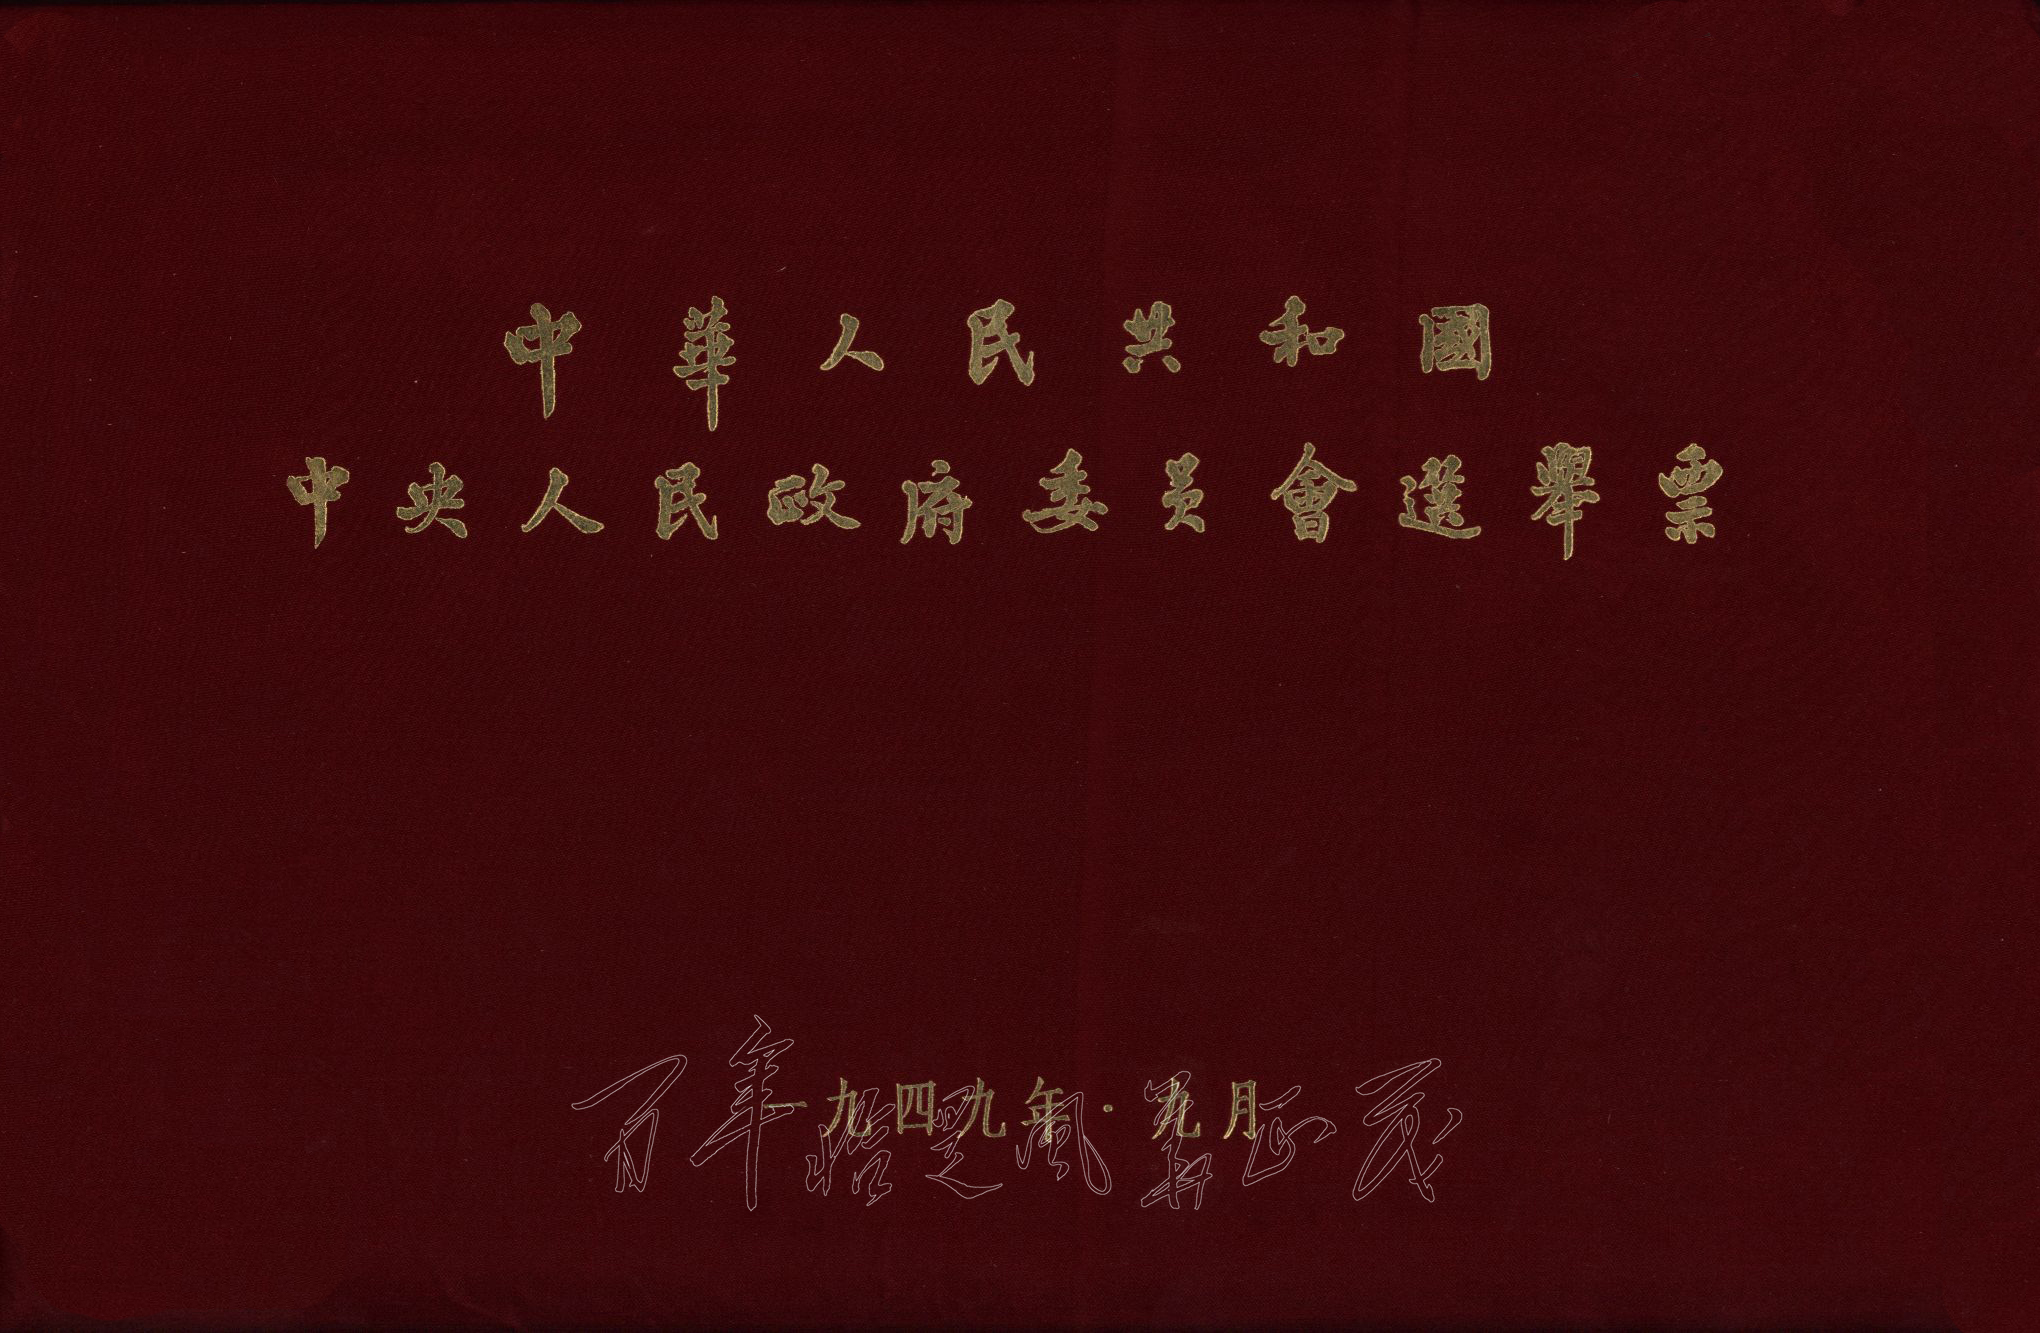 中華人民共和國
中央人民政府委員會選舉票
一九四九年·九月
百年恰是风华正茂